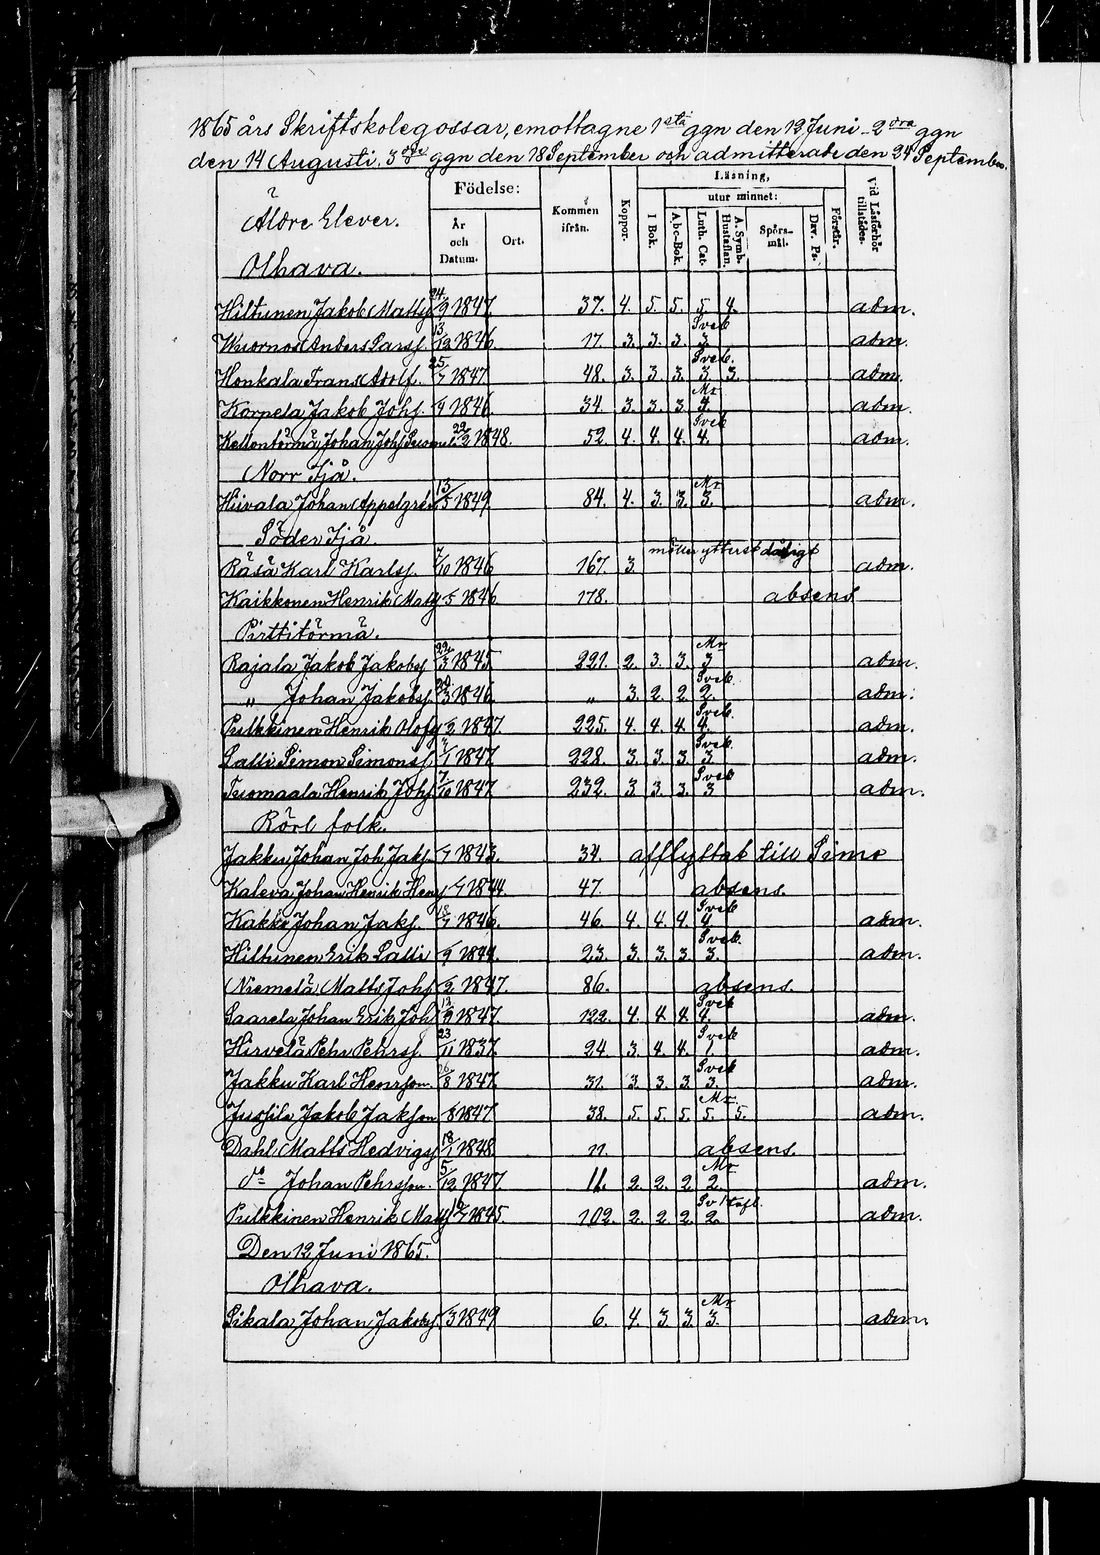 1865 års Skriftskolegossar, emottagne 1sta ggn den 12 Juni - 2dra ggn
den 14 Augusti, 3dje ggn den 18 September och admitterade den 24 September.
Äldre Elever. Födelse: År och Datum. Ort. Kommen ifrån. Koppor. Läsning, I Bok. utur minnet: Abc-Bok. Luth. Cat. A. Symb. Hustaflan. Spörs-mål. Dav. Ps. Förstår. Vid Läsförhör tillstädes.
Olhava.
Hiltunen Jakob Mattsj 24/9 1847. 37. 4. 5. 5. 5. 4. adm.
Wuornos Anders Larsj. 13/12 1846. 17. 3. 3. 3. Sveb. 3. adm.
Honkala Frans Adolf. 25/7 1847 48. 3. 3. 3. Sveb. 3. 3. adm.
Korpela Jakob Johsj 1846. 34. 3. 3. 3. Mr. 4. adm.
Kellontörmä Johan Johsj 22/2 1848. 52. 4. 4. 4. Sveb 4. adm.
Norr Ijå.
Hiivala Johan Appelgrén 13/5 1849. 84. 4. 3. 3. Mr. 3. adm.
Söder Ijå
Räsä Karl Karlsj. 7/10 1846 167. 3. ytterst dåligt adm.
Kaikkonen Henrik Matsj 5 1846. 178. absens
Pirttitörmä.
Rajala Jakob Jakobsj 22/3 1845 221. 2. 3. 3. Mr. 3 adm.
" Johan Jakobsj. 20/3 1846. " 3. 2. 2. Sveb. 2. adm.
Pulkkinen Henrik Olofsj 1847. 225. 4. 4. 4. Sveb. 4. adm.
Lalli Simon Simonsj. 1/1 1847 228. 3. 3. 3. Sveb. 3. adm.
Tuomaala Henrik Johsj 7/10 1847 232. 3. 3. 3. Sveb 3 adm.
Rörl folk.
Jakku Johan Joh Jaksj. 1843. 34. afflyttat till Simo
Kaleva Johan Henrik Hensj 1844. 47. absens.
Kakko Johan Jaksj. 18/7 1846. 46. 4. 4. 4. Sveb 4. adm.
Hiltunen Erik Lalli 1844. 23. 3. 3. 3. Sveb. 3. adm.
Niemelä Matts Johsj 1847. 86. absens.
Saarela Johan Erik Johsj 12/9 1847 122. 4. 4. 4. Sveb 4. adm.
Hirvelä Pehr Pehrsj. 23/11 1837. 24. 3. 4. 4. Sveb 1. adm.
Jakku Karl Henrsson. 26/8 1847. 31. 3. 3. 3. Sveb 3. adm.
Jussila Jakob Jaksson 1847 38. 5. 5. 5. Mr. 5. 5. adm.
Dahl Matts Hedvigsj 18/1 1848. 11. absens.
do Johan Pehrsson. 5/12 1847. 11. 2. 2. 2. Mr. 2. adm.
Pulkkinen Henrik Mattsj 1845. 102. 2. 2. 2. Sv 1 tafl. 2. adm.
Den 12 Juni 1865.
Olhava.
Sikala Johan Jakobsj. 3 1849 6. 4. 3. 3. Mr 3. adm